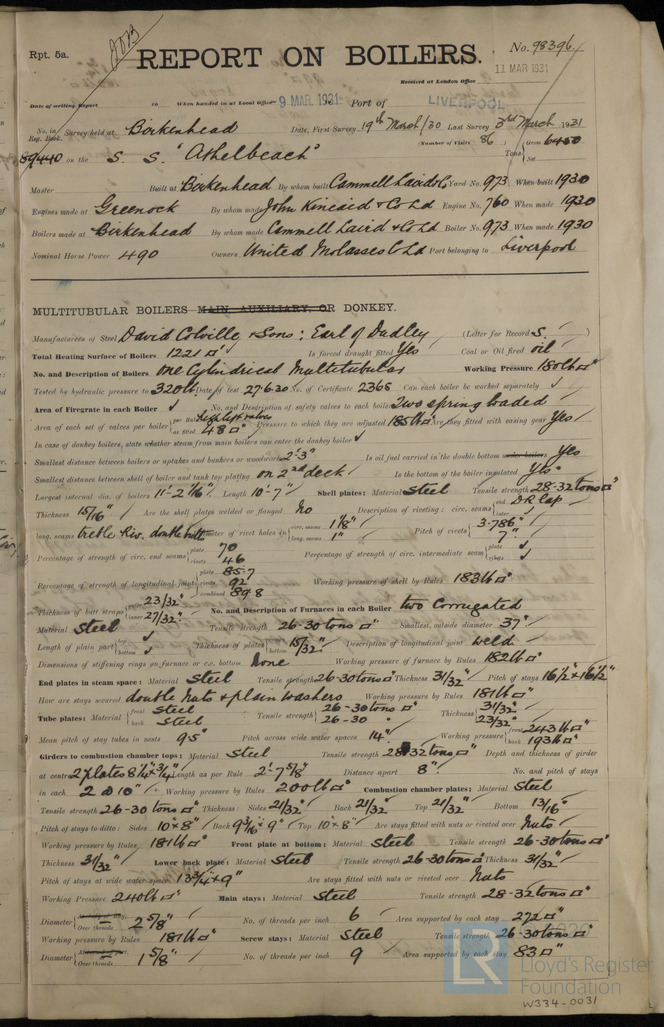 Rpt. 5a.
REPORT ON BOILERS.
No. 98396
Received at London Office 11 MAR 1931
Date of writing Report 19 When handed in at Local Office 9 MAR 1931 Port of LIVERPOOL
No. in Reg. Book. Survey held at Birkenhead Date, First Survey 19th March/30 Last Survey 3rd March 1931
(Number of Visits 86) Gross 6450
89440 on the S. S. "Athelbeach" Tons Net
Master Built at Birkenhead By whom built Cammell Laird & Co Yard No. 973 When built 1930
Engines made at Greenock By whom made John Kincaid & Co Ld Engine No. 760 When made 1930
Boilers made at Birkenhead By whom made Cammell Laird & Co Ld Boiler No. 973 When made 1930
Nominal Horse Power 490 Owners United Molasses C Ld Port belonging to Liverpool
MULTITUBULAR BOILERS MAIN, AUXILIARY, OR DONKEY.
Manufacturers of Steel David Colville & Sons; Earl of Dudley (Letter for Record S.)
Total Heating Surface of Boilers 1221 □' Is forced draught fitted Yes Coal or Oil fired oil
No. and Description of Boilers One Cylindrical Multitubular Working Pressure 180 lb □"
Tested by hydraulic pressure to 320 lb Date of test 27.6.30 No. of Certificate 2365 Can each boiler be worked separately ✓
Area of Firegrate in each Boiler ✓ No. and Description of safety valves to each boiler Two spring loaded
Area of each set of valves per boiler per Rule as fitted high lift valves 4.8 □" Pressure to which they are adjusted 185 lb □" Are they fitted with easing gear Yes
In case of donkey boilers, state whether steam from main boilers can enter the donkey boiler ✓
Smallest distance between boilers or uptakes and bunkers or woodwork 2'-3" Is oil fuel carried in the double bottom under boilers Yes
Smallest distance between shell of boiler and tank top plating on 2nd deck Is the bottom of the boiler insulated Yes
Largest internal dia. of boilers 11'-2 1/16" Length 10'-7" Shell plates: Material Steel Tensile strength 28-32 tons □"
Thickness 15/16" Are the shell plates welded or flanged No Description of riveting: circ. seams end D.R. Lap
long. seams treble Riv. double butt Diameter of rivet holes in circ. seams 1 1/8" long. seams 1" Pitch of rivets 3.786" 7"
Percentage of strength of circ. end seams plate 70 rivets 46 Percentage of strength of circ. intermediate seam plate ✓ rivets ✓
Percentage of strength of longitudinal joint plate 85.7 rivets 92 combined 89.8 Working pressure of shell by Rules 183 lb □"
Thickness of butt straps outer 23/32" inner 27/32" No. and Description of Furnaces in each Boiler two Corrugated
Material Steel Tensile strength 26-30 tons □" Smallest outside diameter 37"
Length of plain part top ✓ bottom ✓ Thickness of plates 15/32" Description of longitudinal joint weld
Dimensions of stiffening rings on furnace or c.c. bottom None Working pressure of furnace by Rules 182 lb □"
End plates in steam space: Material Steel Tensile strength 26-30 tons □" Thickness 31/32" Pitch of stays 16 1/2" x 16 1/2"
How are stays secured double nuts & plain washers Working pressure by Rules 181 lb □"
Tube plates: Material front Steel back Steel Tensile strength 26-30 tons □" 26-30 " Thickness 31/32" 23/32"
Mean pitch of stay tubes in nests 9.5" Pitch across wide water spaces 14" Working pressure front 243 lb □" back 193 lb □"
Girders to combustion chamber tops: Material Steel Tensile strength 28-32 tons □" Depth and thickness of girder
at centre 2 plates 8 1/4" x 3/4" Length as per Rule 2'-7 5/8" Distance apart 8" No. and pitch of stays
in each 2 @ 10" Working pressure by Rules 200 lb □" Combustion chamber plates: Material Steel
Tensile strength 26-30 tons □" Thickness: Sides 21/32" Back 21/32" Top 21/32" Bottom 13/16"
Pitch of stays to ditto: Sides 10" x 8" Back 9 3/16" x 9" Top 10" x 8" Are stays fitted with nuts or riveted over Nuts
Working pressure by Rules 181 lb □" Front plate at bottom: Material Steel Tensile strength 26-30 tons □"
Thickness 31/32" Lower back plate: Material Steel Tensile strength 26-30 tons □" Thickness 31/32"
Pitch of stays at wide water space 13 3/4" x 9" Are stays fitted with nuts or riveted over Nuts
Working Pressure 240 lb □" Main stays: Material Steel Tensile strength 28-32 tons □"
Diameter At body of stay, or Over threads 2 5/8" No. of threads per inch 6 Area supported by each stay 272 □"
Working pressure by Rules 181 lb □" Screw stays: Material Steel Tensile strength 26-30 tons □"
Diameter At turned off part, or Over threads 1 5/8" No. of threads per inch 9 Area supported by each stay 83 □"
LR
Lloyd's Register
Foundation
W334-0031